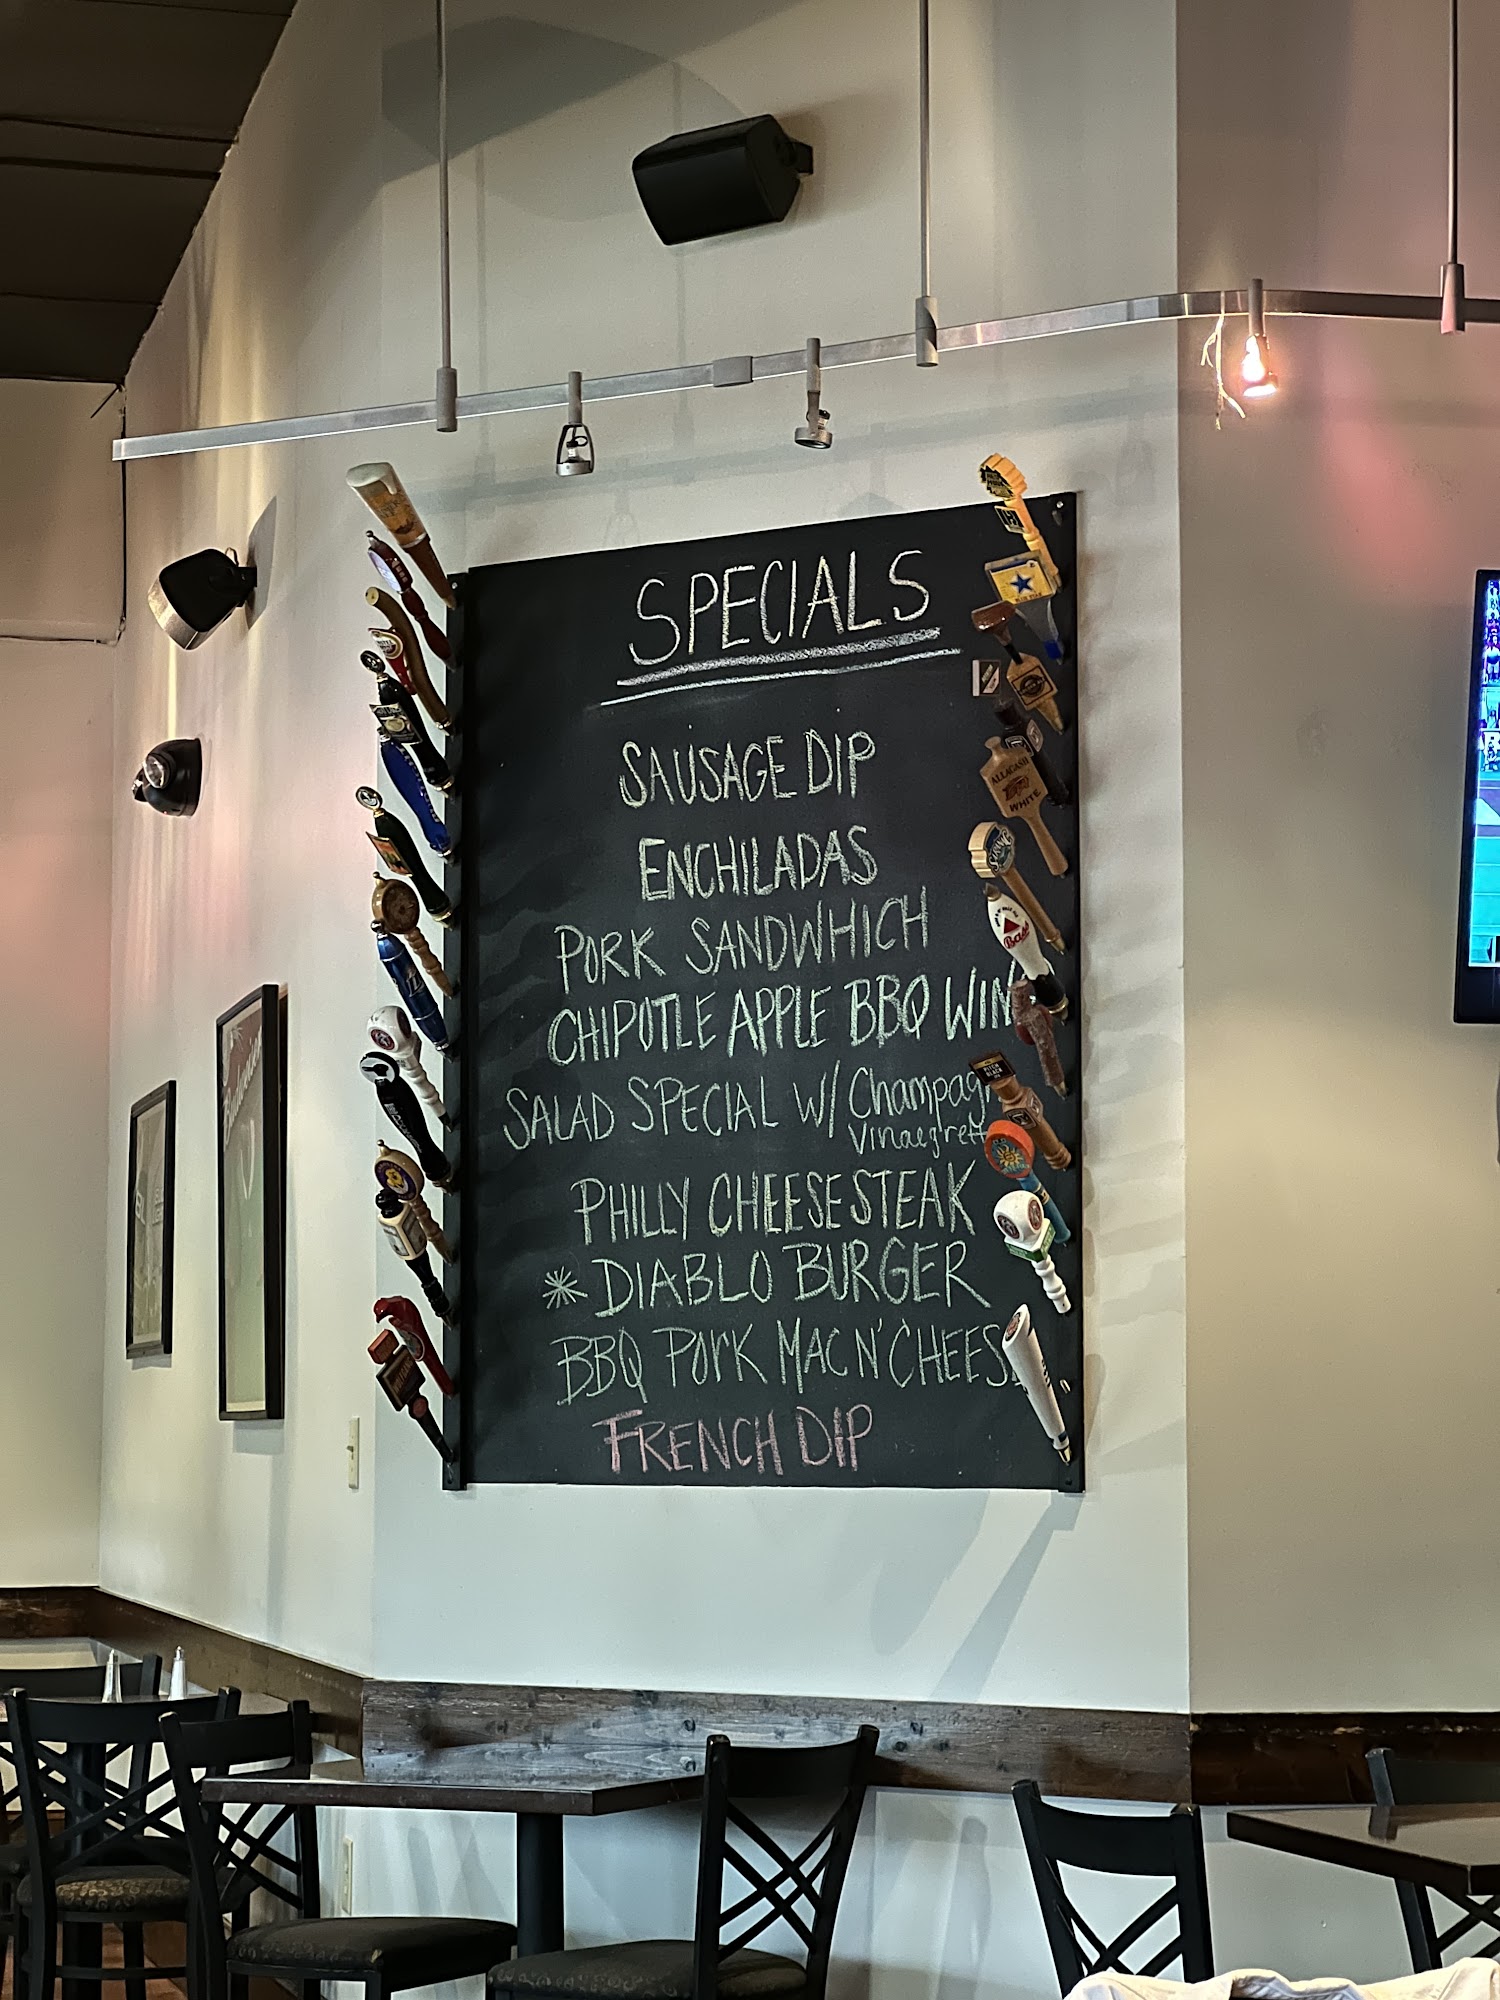 SPECIALS
SAUSAGE DIP
ENCHILADAS
PORK SANDWHICH
CHIPOTLE APPLE BBQ WIN
SALAD SPECIAL W/ Champag
Vinaegrett
PHILLY CHEESE STEAK
* DIABLO BURGER
BBQ PORK MAC N' CHEES
FRENCH DIP
ALLAGASH
WHITE
Bass
PITCH
BLACK
Budweiser